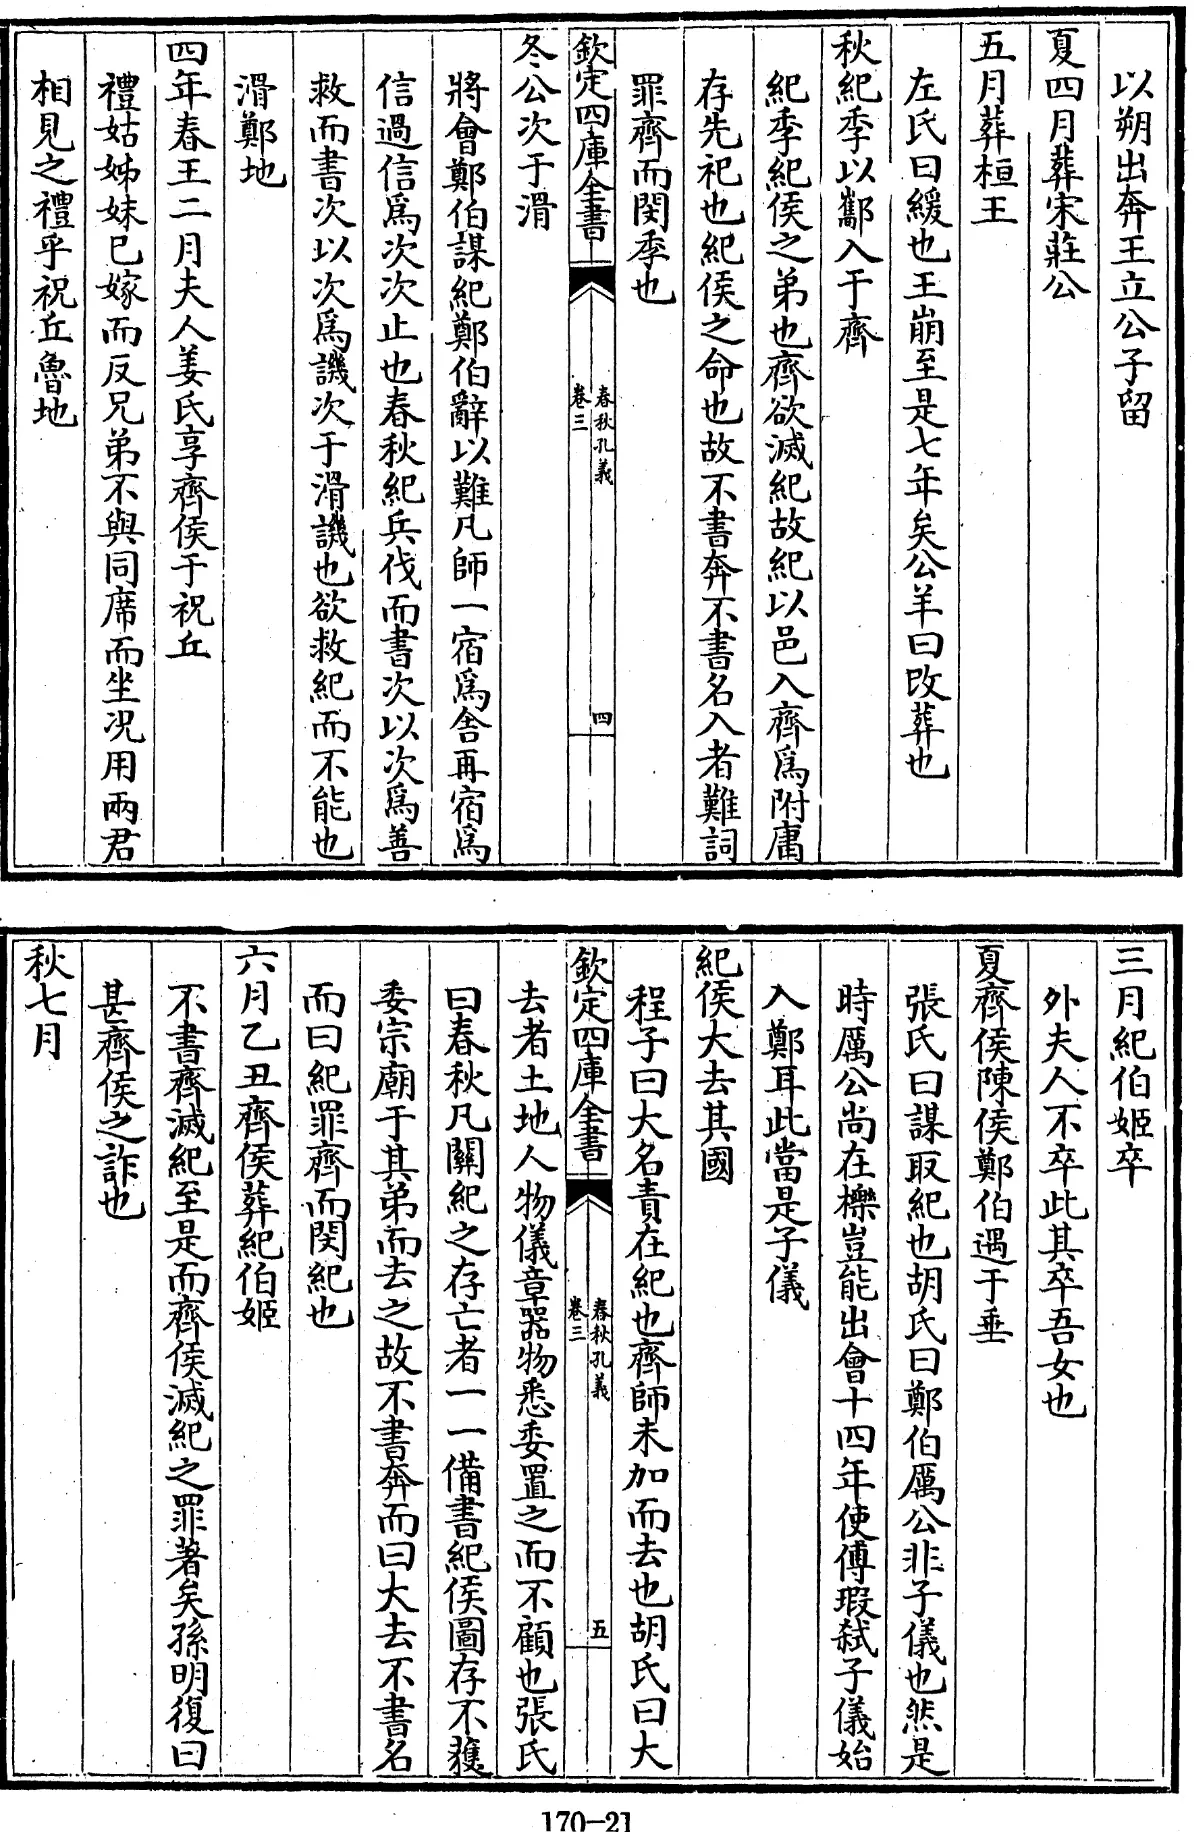 以朔出奔王立公子留
夏四月葬宋莊公
五月葬桓王
左氏曰緩也王崩至是七年矣公羊曰改葬也
秋紀季以酅入于齊
紀季紀侯之弟也齊欲滅紀故紀以邑入齊爲附庸
存先祀也紀侯之命也故不書奔不書名入者難詞
罪齊而閔季也
欽定四庫全書
春秋孔義
卷三
四
冬公次于滑
將會鄭伯謀紀鄭伯辭以難凡師一宿爲舍再宿爲
信過信爲次次止也春秋紀兵伐而書次以次爲善
救而書次以次爲譏次于滑譏也欲救紀而不能也
滑鄭地
四年春王二月夫人姜氏享齊侯于祝丘
禮姑姊妹已嫁而反兄弟不與同席而坐况用兩君
相見之禮乎祝丘魯地
三月紀伯姬卒
外夫人不卒此其卒吾女也
夏齊侯陳侯鄭伯遇于垂
張氏曰謀取紀也胡氏曰鄭伯厲公非子儀也然是
時厲公尚在櫟豈能出會十四年使傅瑕弑子儀始
入鄭耳此當是子儀
紀侯大去其國
程子曰大名責在紀也齊師未加而去也胡氏曰大
欽定四庫全書
春秋孔義
卷三
五
去者土地人物儀章器物悉委置之而不顧也張氏
曰春秋凡關紀之存亡者一一備書紀侯圖存不獲
委宗廟于其弟而去之故不書奔而曰大去不書名
而曰紀罪齊而閔紀也
六月乙丑齊侯葬紀伯姬
不書齊滅紀至是而齊侯滅紀之罪著矣孫明復曰
甚齊侯之詐也
秋七月
170-21